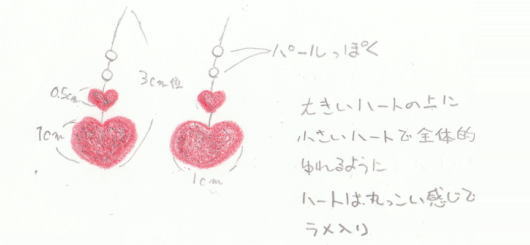 パールっぽく
3cm位
0.5cm
1cm
1cm
大きいハートの上に
小さいハートで全体的
ゆれるように
ハートは丸っこい感じで
ラメ入り